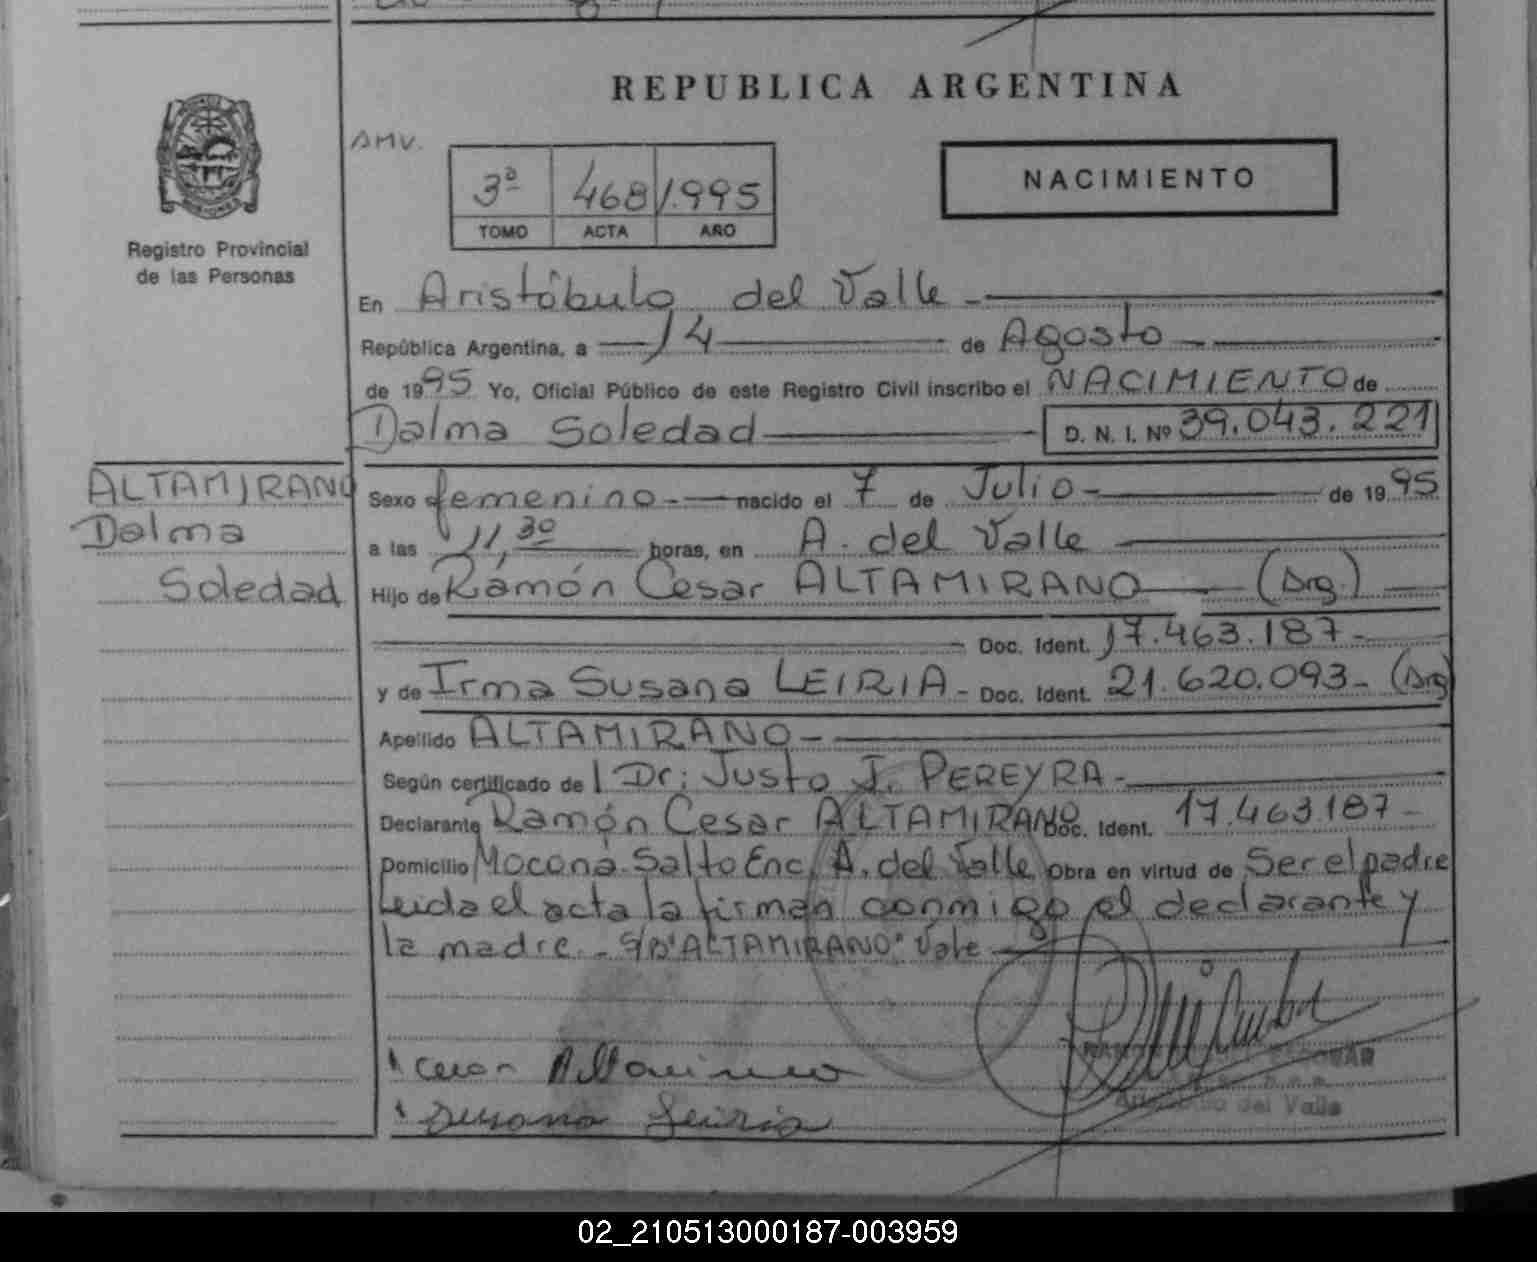 REPUBLICA ARGENTINA
AMV.
3ª 468 1.995
TOMO ACTA AÑO
NACIMIENTO
Registro Provincial
de las Personas
En Aristóbulo del Valle -
República Argentina, a 14 de Agosto -
de 1995 Yo, Oficial Público de este Registro Civil inscribo el NACIMIENTO de
Dalma Soledad D. N. I. Nº 39.043.221
ALTAMIRANO
Dalma
Soledad
Sexo femenino - nacido el 7 de Julio - de 1995
a las 11,30 horas, en A. del Valle
Hijo de Ramón Cesar ALTAMIRANO (Arg.)
Doc. Ident. 17.463.187-
y de Irma Susana LEIRIA - Doc. Ident. 21.620.093- (Arg)
Apellido ALTAMIRANO -
Según certificado de Dr: Justo J. PEREYRA -
Declarante Ramón Cesar ALTAMIRANO Doc. Ident. 17.463.187-
Domicilio Moconá Salto Enc. A. del Valle Obra en virtud de Ser el padre
Leida el acta la firman conmigo el declarante y
la madre. - S/B "ALTAMIRANO" Vale
Cesar Altamirano
Susana Leiria
del Valle
02_210513000187-003959